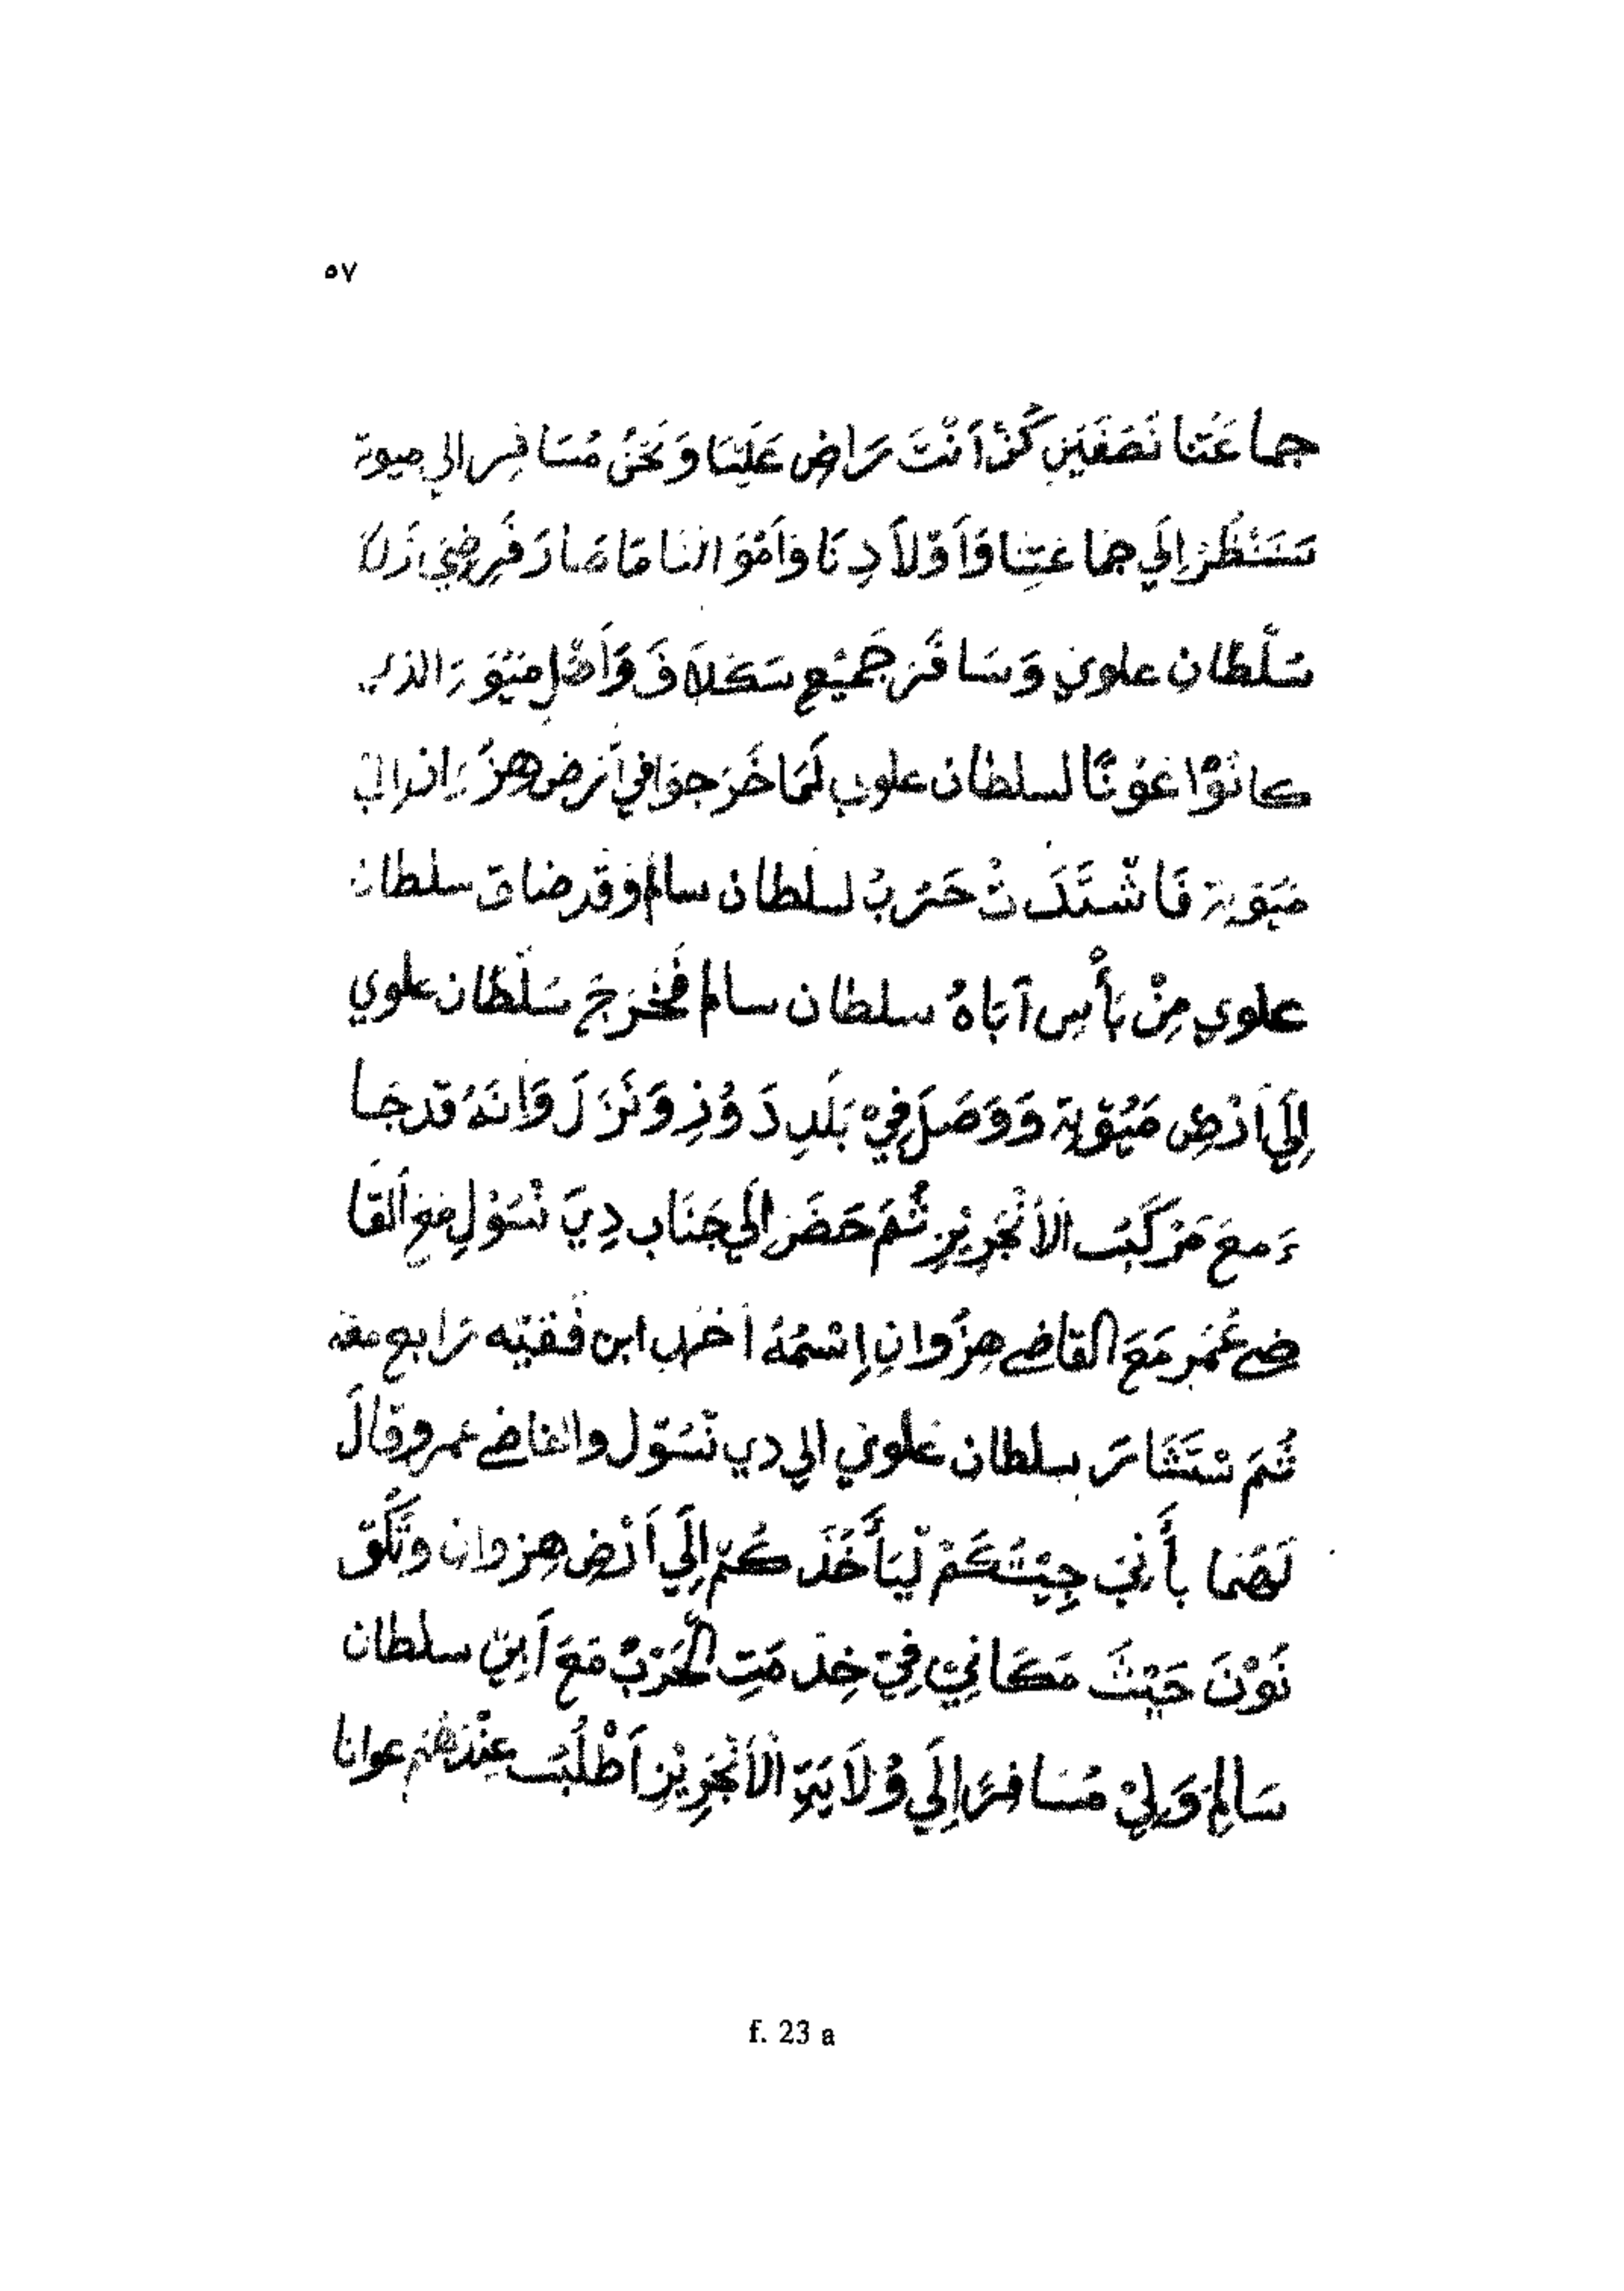 ٥٧
جماعَتنا نَصَفَيْنِ كُنْ اَنْتَ رَاضِ عَلَيْنَا وَنَحْنُ مُسَافِر الي ميوة
سَنَنْظُرْ اِلَي جمَاعَتِنا وَاَوْلاَدِنَا وَاَمْوَالنَا مَا صَارَ فَرِضِيَ
سُلْطَان علوي وَسَافَر جَمِيْع سَكَلاَفَ وَاَهْل مَيُوَ الذي
كانُوْا عَوْنًا لسلطان علوي لَمَا خَرَجوَا في اَرض هِزْوَان اِلي
مَيُوَة فَاشْتَدَتْ حَرْبُ لسلطان سالم وقد ضاق سلطان
علوي مِنْ بَأْسِ اَبَاهُ سلطان سالم فَخَرَجَ سُلْطان علوي
اِلَي اَرْضِ مَيُوَة وَوَصَلَ فِيْ بَلَدِ دَوُنِ وَنَزَلَ وَاِنَهُ قد جَا
ءَ معَ مَرْكَبُ الاَنْجَرِيْزِ ثُمَ حَضَرَ اِلَي جَنَاب دِيَ نْسُوْلِ مَعَ اَلقَا
ضي عُمَر مَعَ القاضي هِزْوانِ اِسْمُهُ ابن فَقيْه رَابع معه
ثُمَ سْتَشَارَ سلطان علوي الي دي نْسُوْل والقاضي عمر وقالَ
لَهُمَا بأَنِي جِيْتُكُمْ لِيَأْخُذَ كُمْ اِلَي اَرْضِ هِزوان وتَكُوْ
نُوْنَ حَيْثَ مَكَانِيْ فِيْ خِدْمَتِ الحَرْبُ مَعَ اَبِيْ سلطان
سَالِمْ وَاِنِيْ مُسَافِرًا اِلَي وُلاَيَةِ الاَنْجَرِيْزِ اَطْلُبُ عِنْدَهُمْ عوانا
f. 23 a